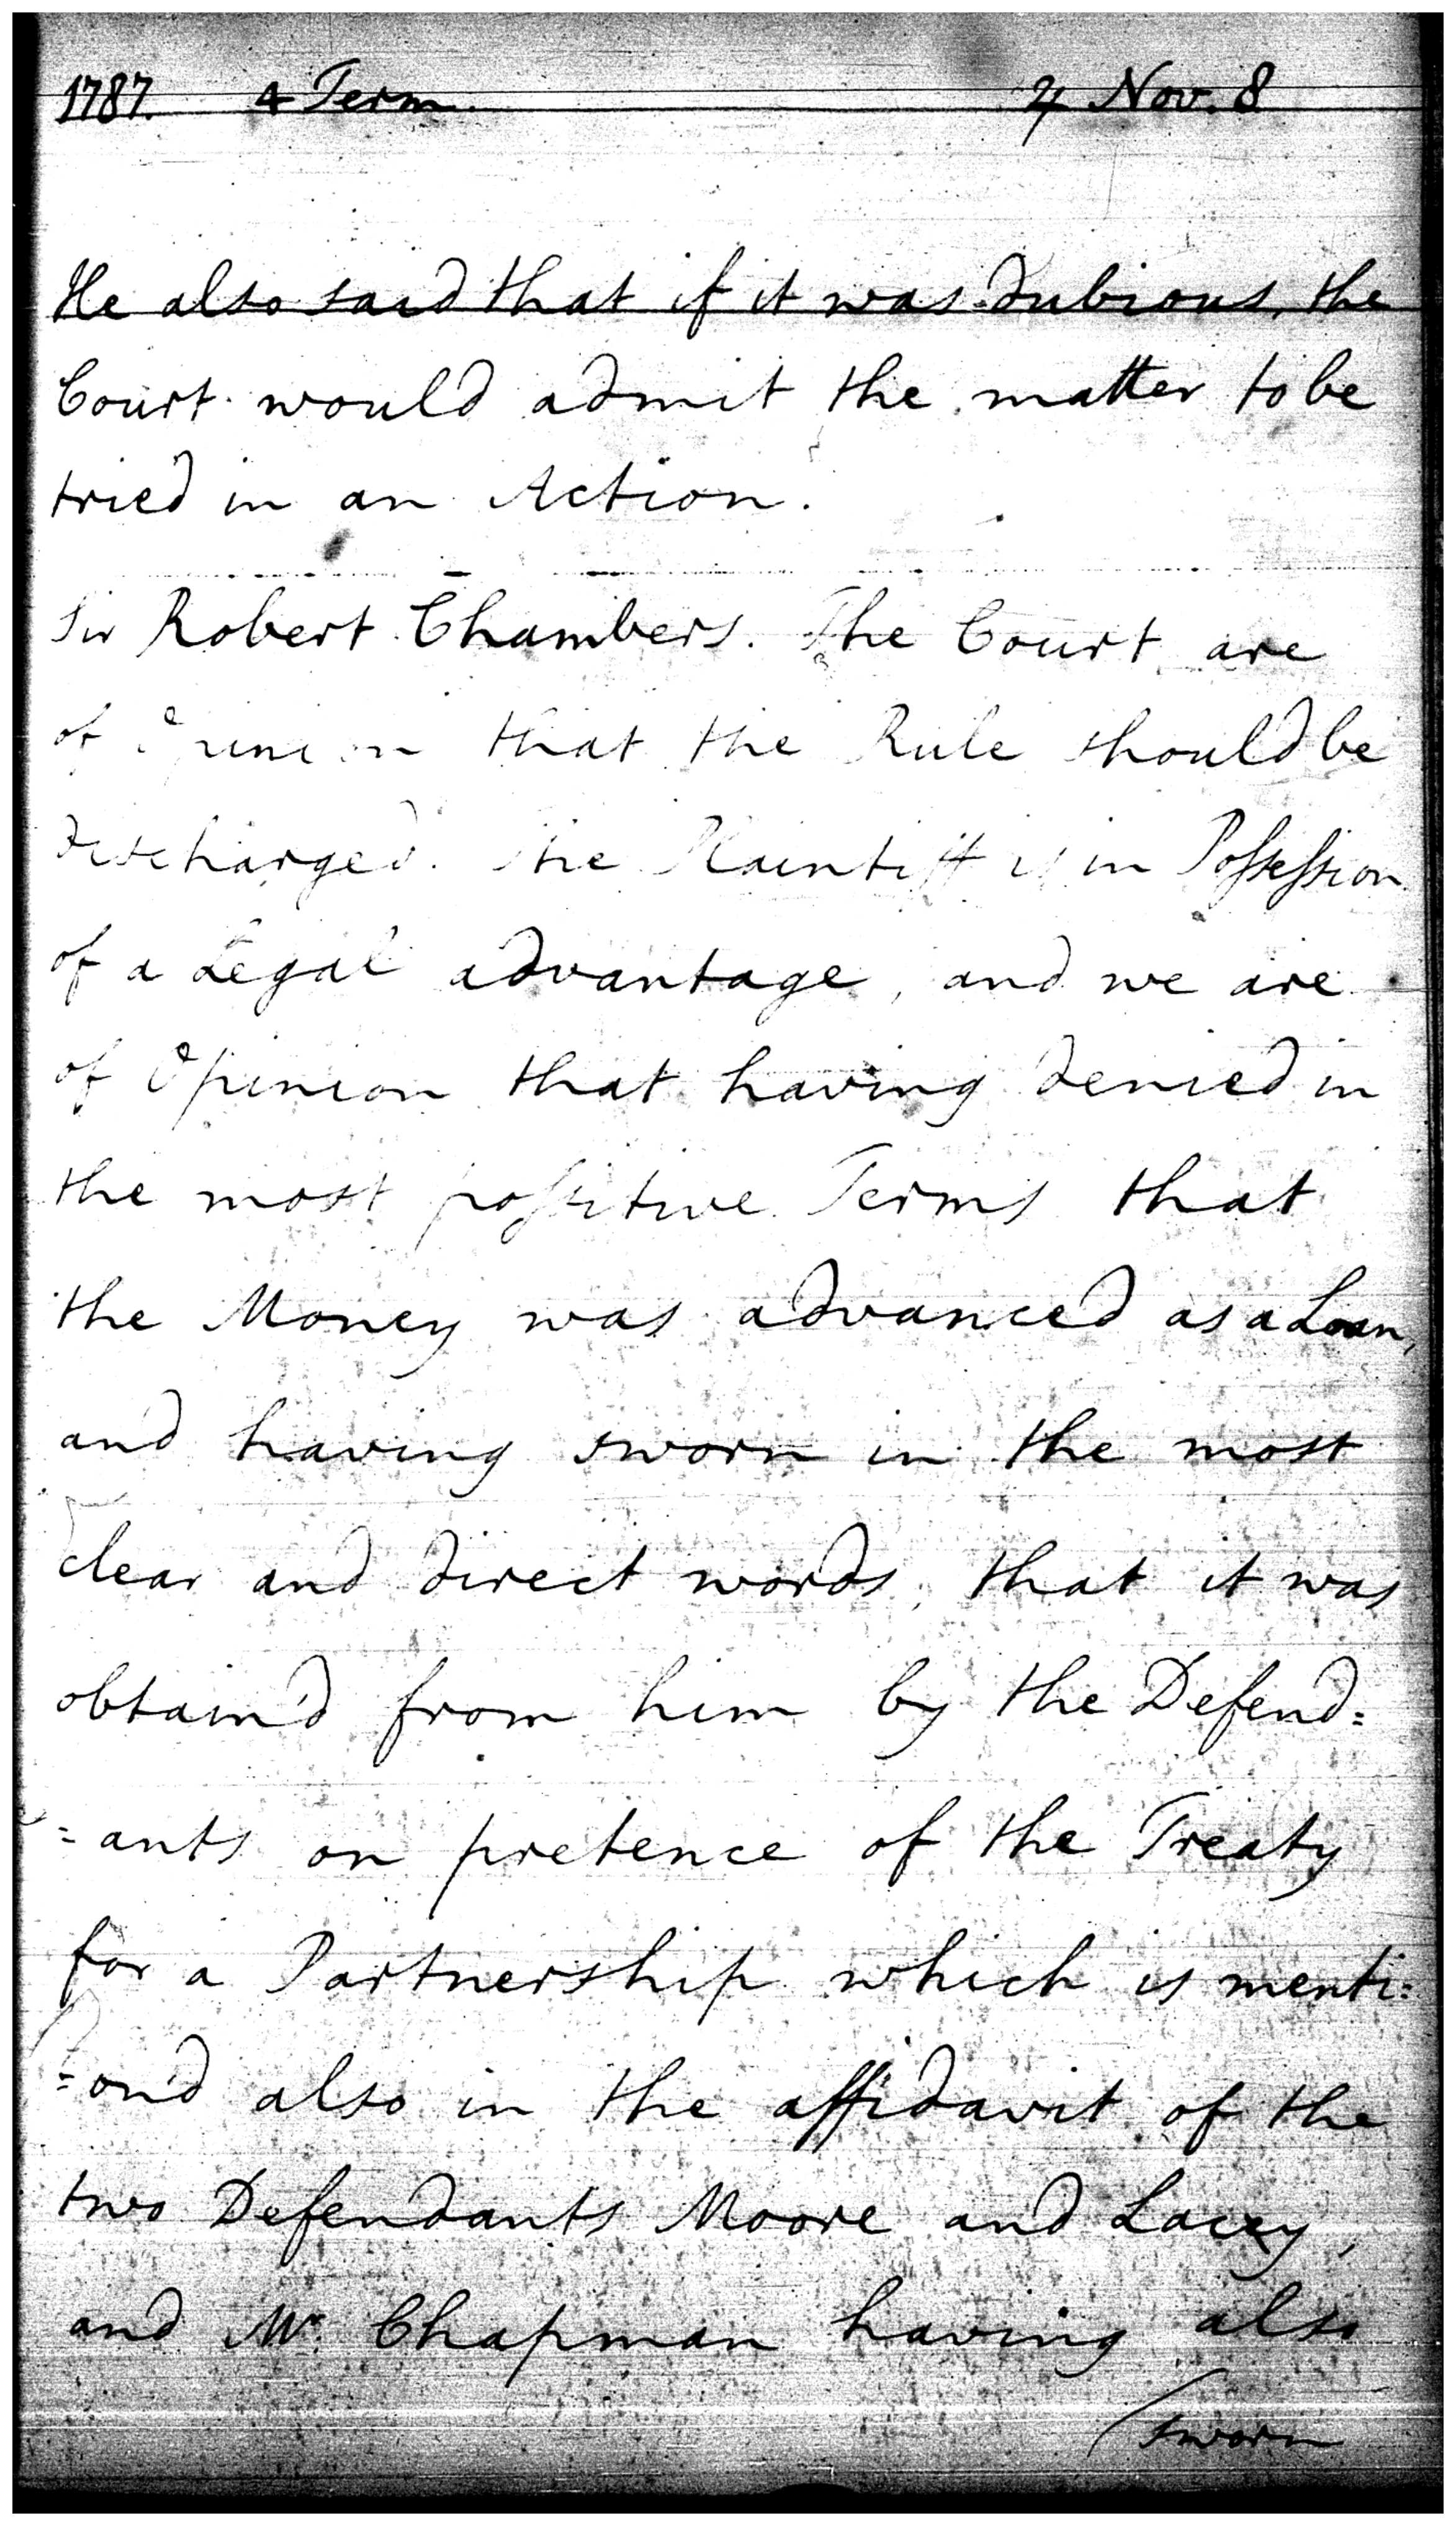 1787. 4 Term. ♃ Nov. 8
He also said that if it was dubious, the
Court would admit the matter to be
tried in an Action.
Sir Robert Chambers. The Court are
of Opinion that the Rule should be
discharged. The Plaintiff is in Possession
of a Legal advantage, and we are
of Opinion that having denied in
the most possitive Terms that
the Money was advanced as a Loan,
and having sworn in the most
clear and direct words, that it was
obtain'd from him by the Defend=
=ants on pretence of the Treaty
for a Partnership which is menti=
=on'd also in the affidavit of the
two Defendants Moore and Lacey,
and Mr. Chapman having also
sworn